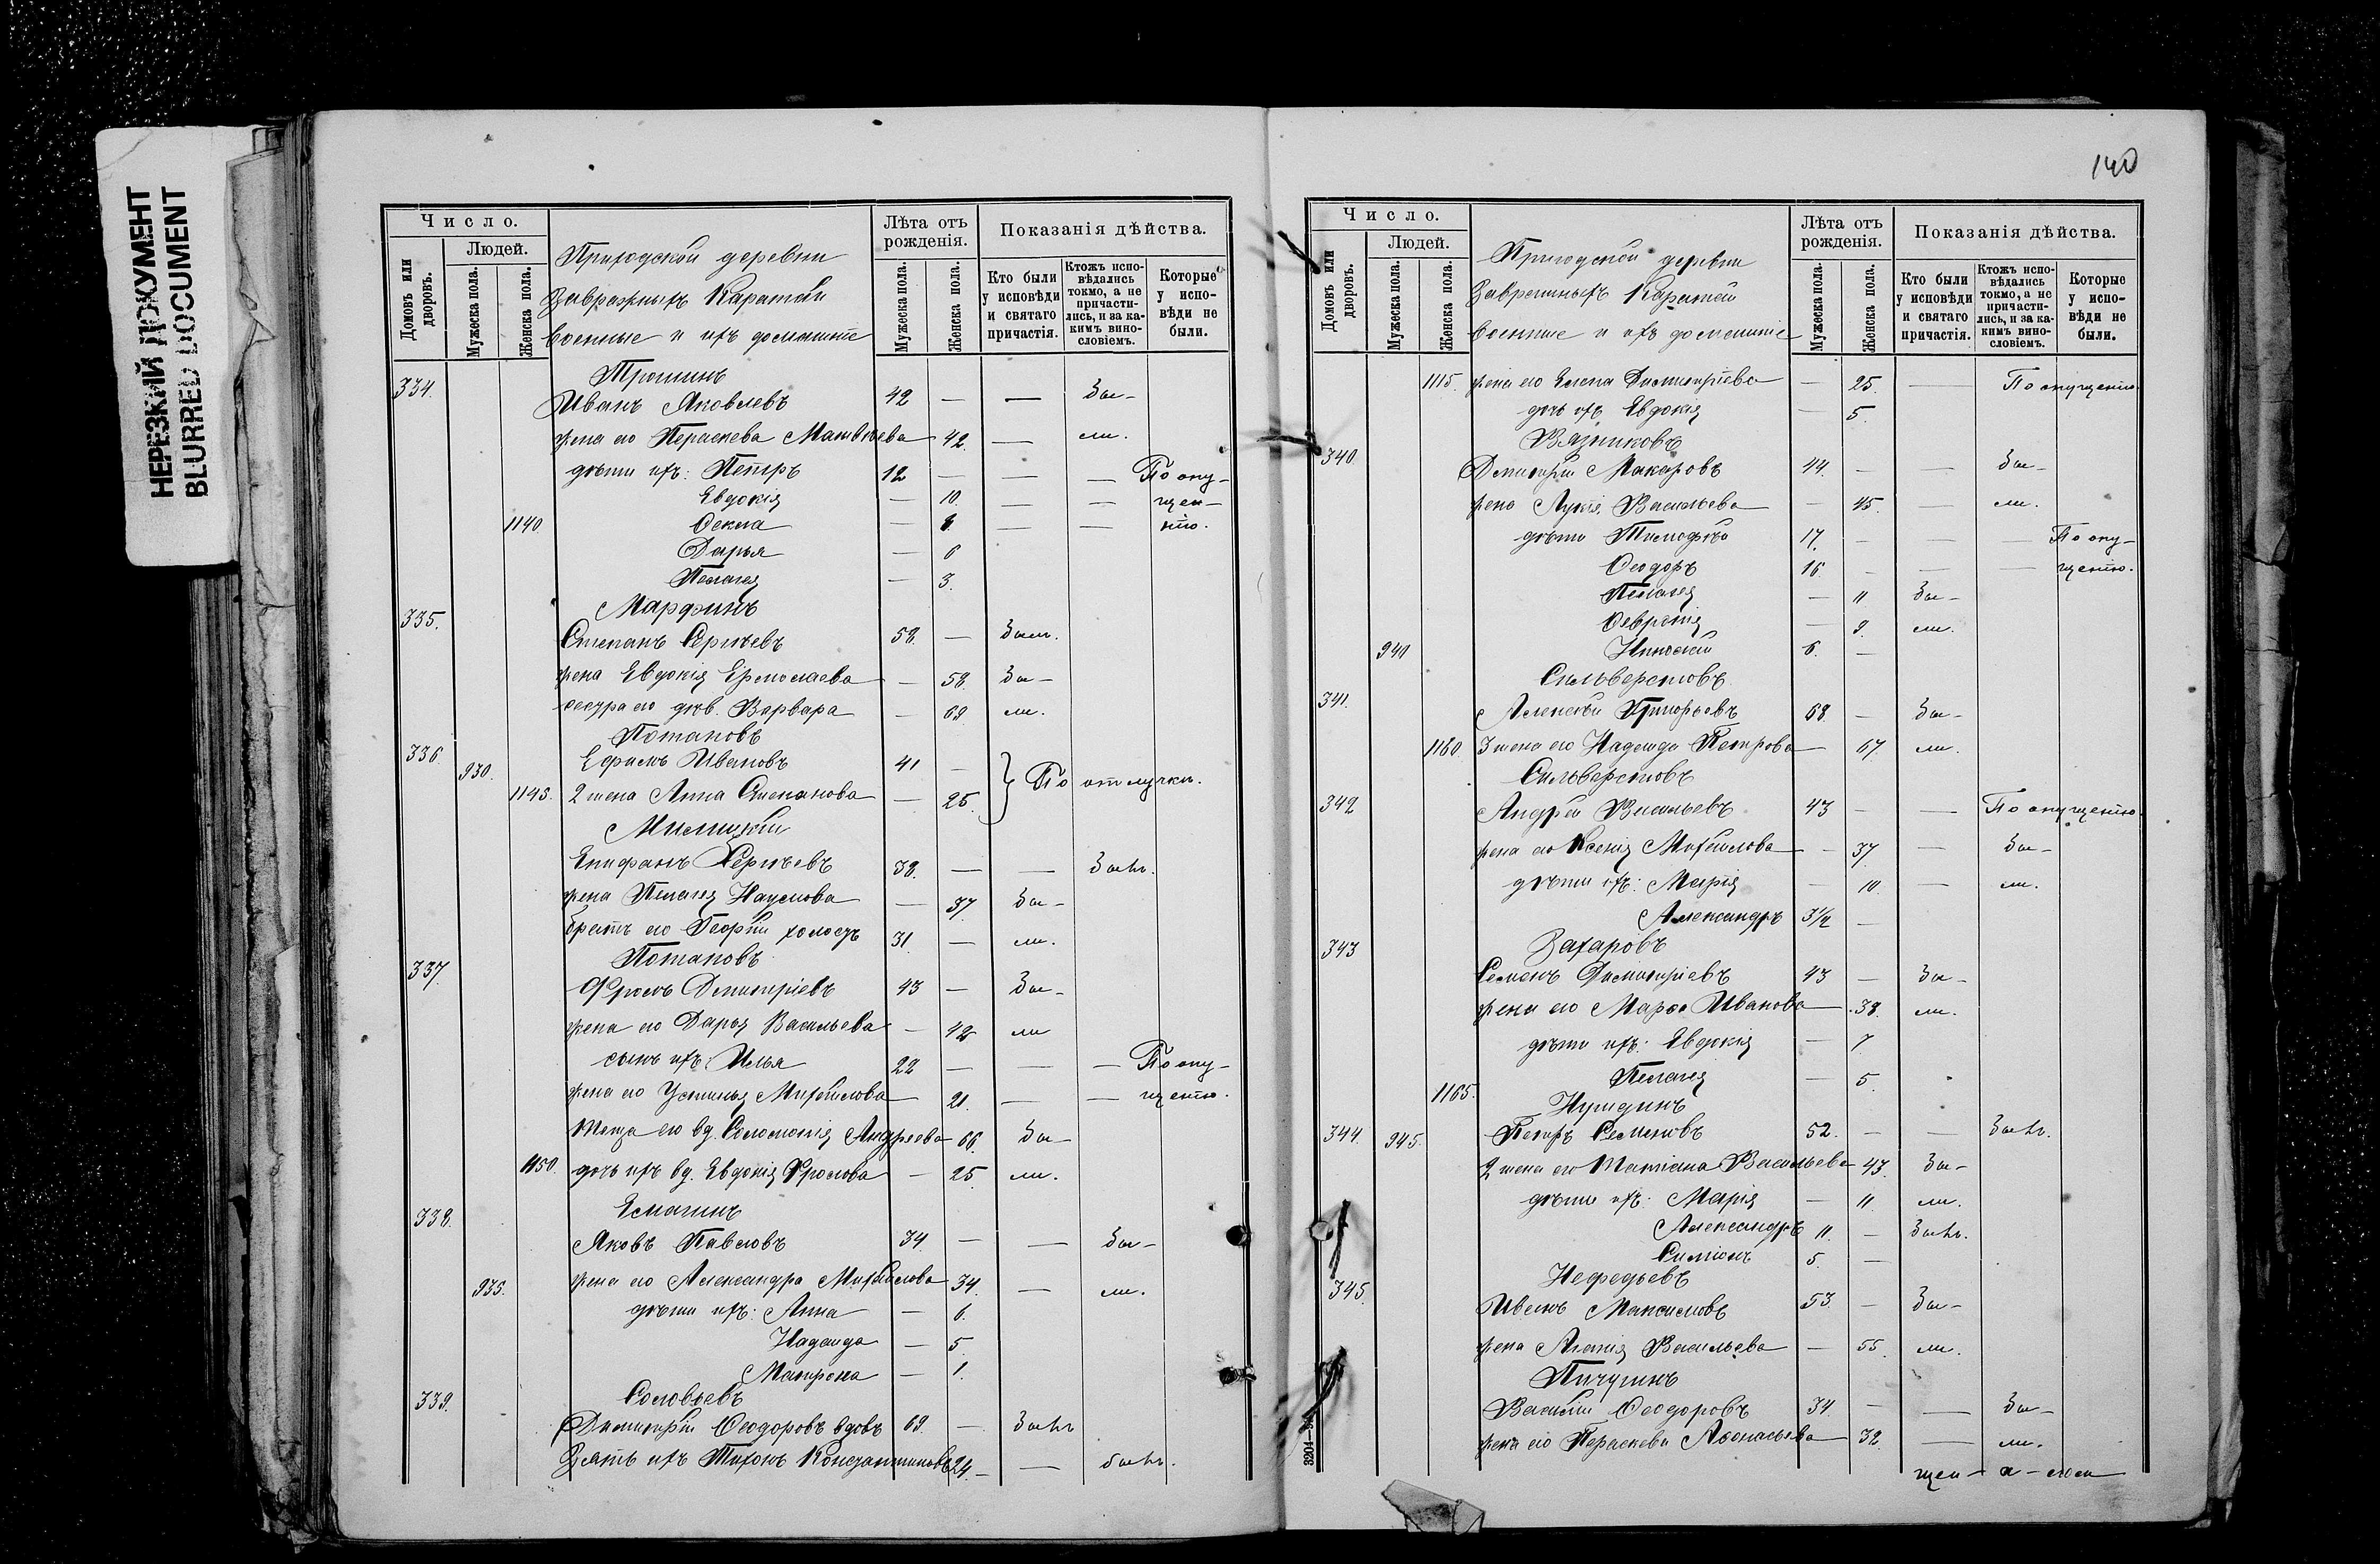 НЕРЕЗКИЙ ДОКУМЕНТ
BLURRED DOCUMENT
Число.
Людей.
Домовъ или дворовъ.
Мужеска пола.
Женска пола.
Приходской деревни
Завражныхъ Каратай
военные и ихъ домашніе
Лѣта отъ рожденія.
Мужеска пола.
Женска пола.
Показанія дѣйства.
Кто были у исповѣди и святаго причастія.
Ктожъ исповѣдались токмо, а не причастились, и за какимъ винословіемъ.
Которые у исповѣди не были.
334.
Иванъ Яковлевъ 42 — — Бы-
жена его Параскева Матвѣева 42 — ли.
дѣти ихъ: Петръ 12 — — — По опу-
Евдокія — 10. — — щен-
1140. Ѳекла — 8. — — нію.
Дарья — 6
Пелагея — 3.
335. Марфинъ
Степанъ Сергѣевъ 58. — Былъ.
жена Евдокія Ермолаева — 58. Бы-
сестра его дѣв. Варвара — 69 ли.
336. Потаповъ
930. Ефимъ Ивановъ 41 —
1145. 2 жена Анна Степанова — 25. По отлучкѣ.
Епифанъ Сергѣевъ 38. — — Былъ.
жена Пелагея Наумова — 37 Бы-
братъ его Георгій холостъ 31 — ли.
337. Потаповъ
Фролъ Дмитріевъ 43 — Бы-
жена его Дарья Васильева — 42 ли
сынъ ихъ: Илья 22 — — — По опу-
жена его Устинья Михайлова 21. — — щенію.
Теща его вд. Соломонія Андреева 66. Бы-
1150. дочь ихъ вд. Евдокія Фролова — 25 ли.
338. Елагинъ
Яковъ Павловъ 34 — — Бы-
935. жена его Александра Михайлова 34. — ли.
дѣти ихъ: Анна — 6.
Надежда — 5.
Матрона — 1.
339. Соловьевъ
Димитрій Ѳеодоровъ вдовъ 69. — Былъ
Зять ихъ Тихонъ Константиновъ 24. — — былъ.
140
Число.
Людей.
Домовъ или дворовъ.
Мужеска пола.
Женска пола.
Приходской деревни
Завражныхъ Каратай
военные и ихъ домашніе
Лѣта отъ рожденія.
Мужеска пола.
Женска пола.
Показанія дѣйства.
Кто были у исповѣди и святаго причастія.
Ктожъ исповѣдались токмо, а не причастились, и за какимъ винословіемъ.
Которые у исповѣди не были.
1115. жена его Елена Димитріева — 25. — По опущенію.
дочь ихъ Евдокія — 5.
340. Вязниковъ
Дмитрій Макаровъ 44. — — Бы-
жена Лукія Васильева — 45. — ли.
дѣти Тимоѳей 17. — — — По опу-
Ѳеодоръ 16. — — — щенію.
Пелагея — 11 Бы-
Ѳевронія — 9. ли.
940 Николай 6. —
Сильверстовъ
341. Алексѣй Григорьевъ 68. — Бы-
1160. 3 жена его Надежда Петрова — 67. ли.
Сильверстовъ
342 Андрей Васильевъ 43 — — По опущенію.
жена его Ксенія Михайлова — 37 — Бы-
дѣти ихъ: Марія — 10. — ли.
Александръ 3½ —
343 Захаровъ
Семенъ Димитріевъ 43 — Бы-
жена его Марѳа Иванова — 38. ли.
дѣти ихъ: Евдокія — 7.
Пелагея — 5.
1165.
344. 945. Петръ Семеновъ 52. — — Былъ.
2 жена его Татіана Васильева 43. Бы-
дѣти ихъ: Марія — 11 ли.
Александръ 11. — Былъ.
Симеонъ 5. —
345. Нефедьевъ
Иванъ Максимовъ 53. — Бы-
жена Агаѳія Васильева — 55. ли.
Пичугинъ
Василій Ѳеодоровъ 34. — — Бы-
жена его Параскева Аѳонасьева 32. — ли.
3204—